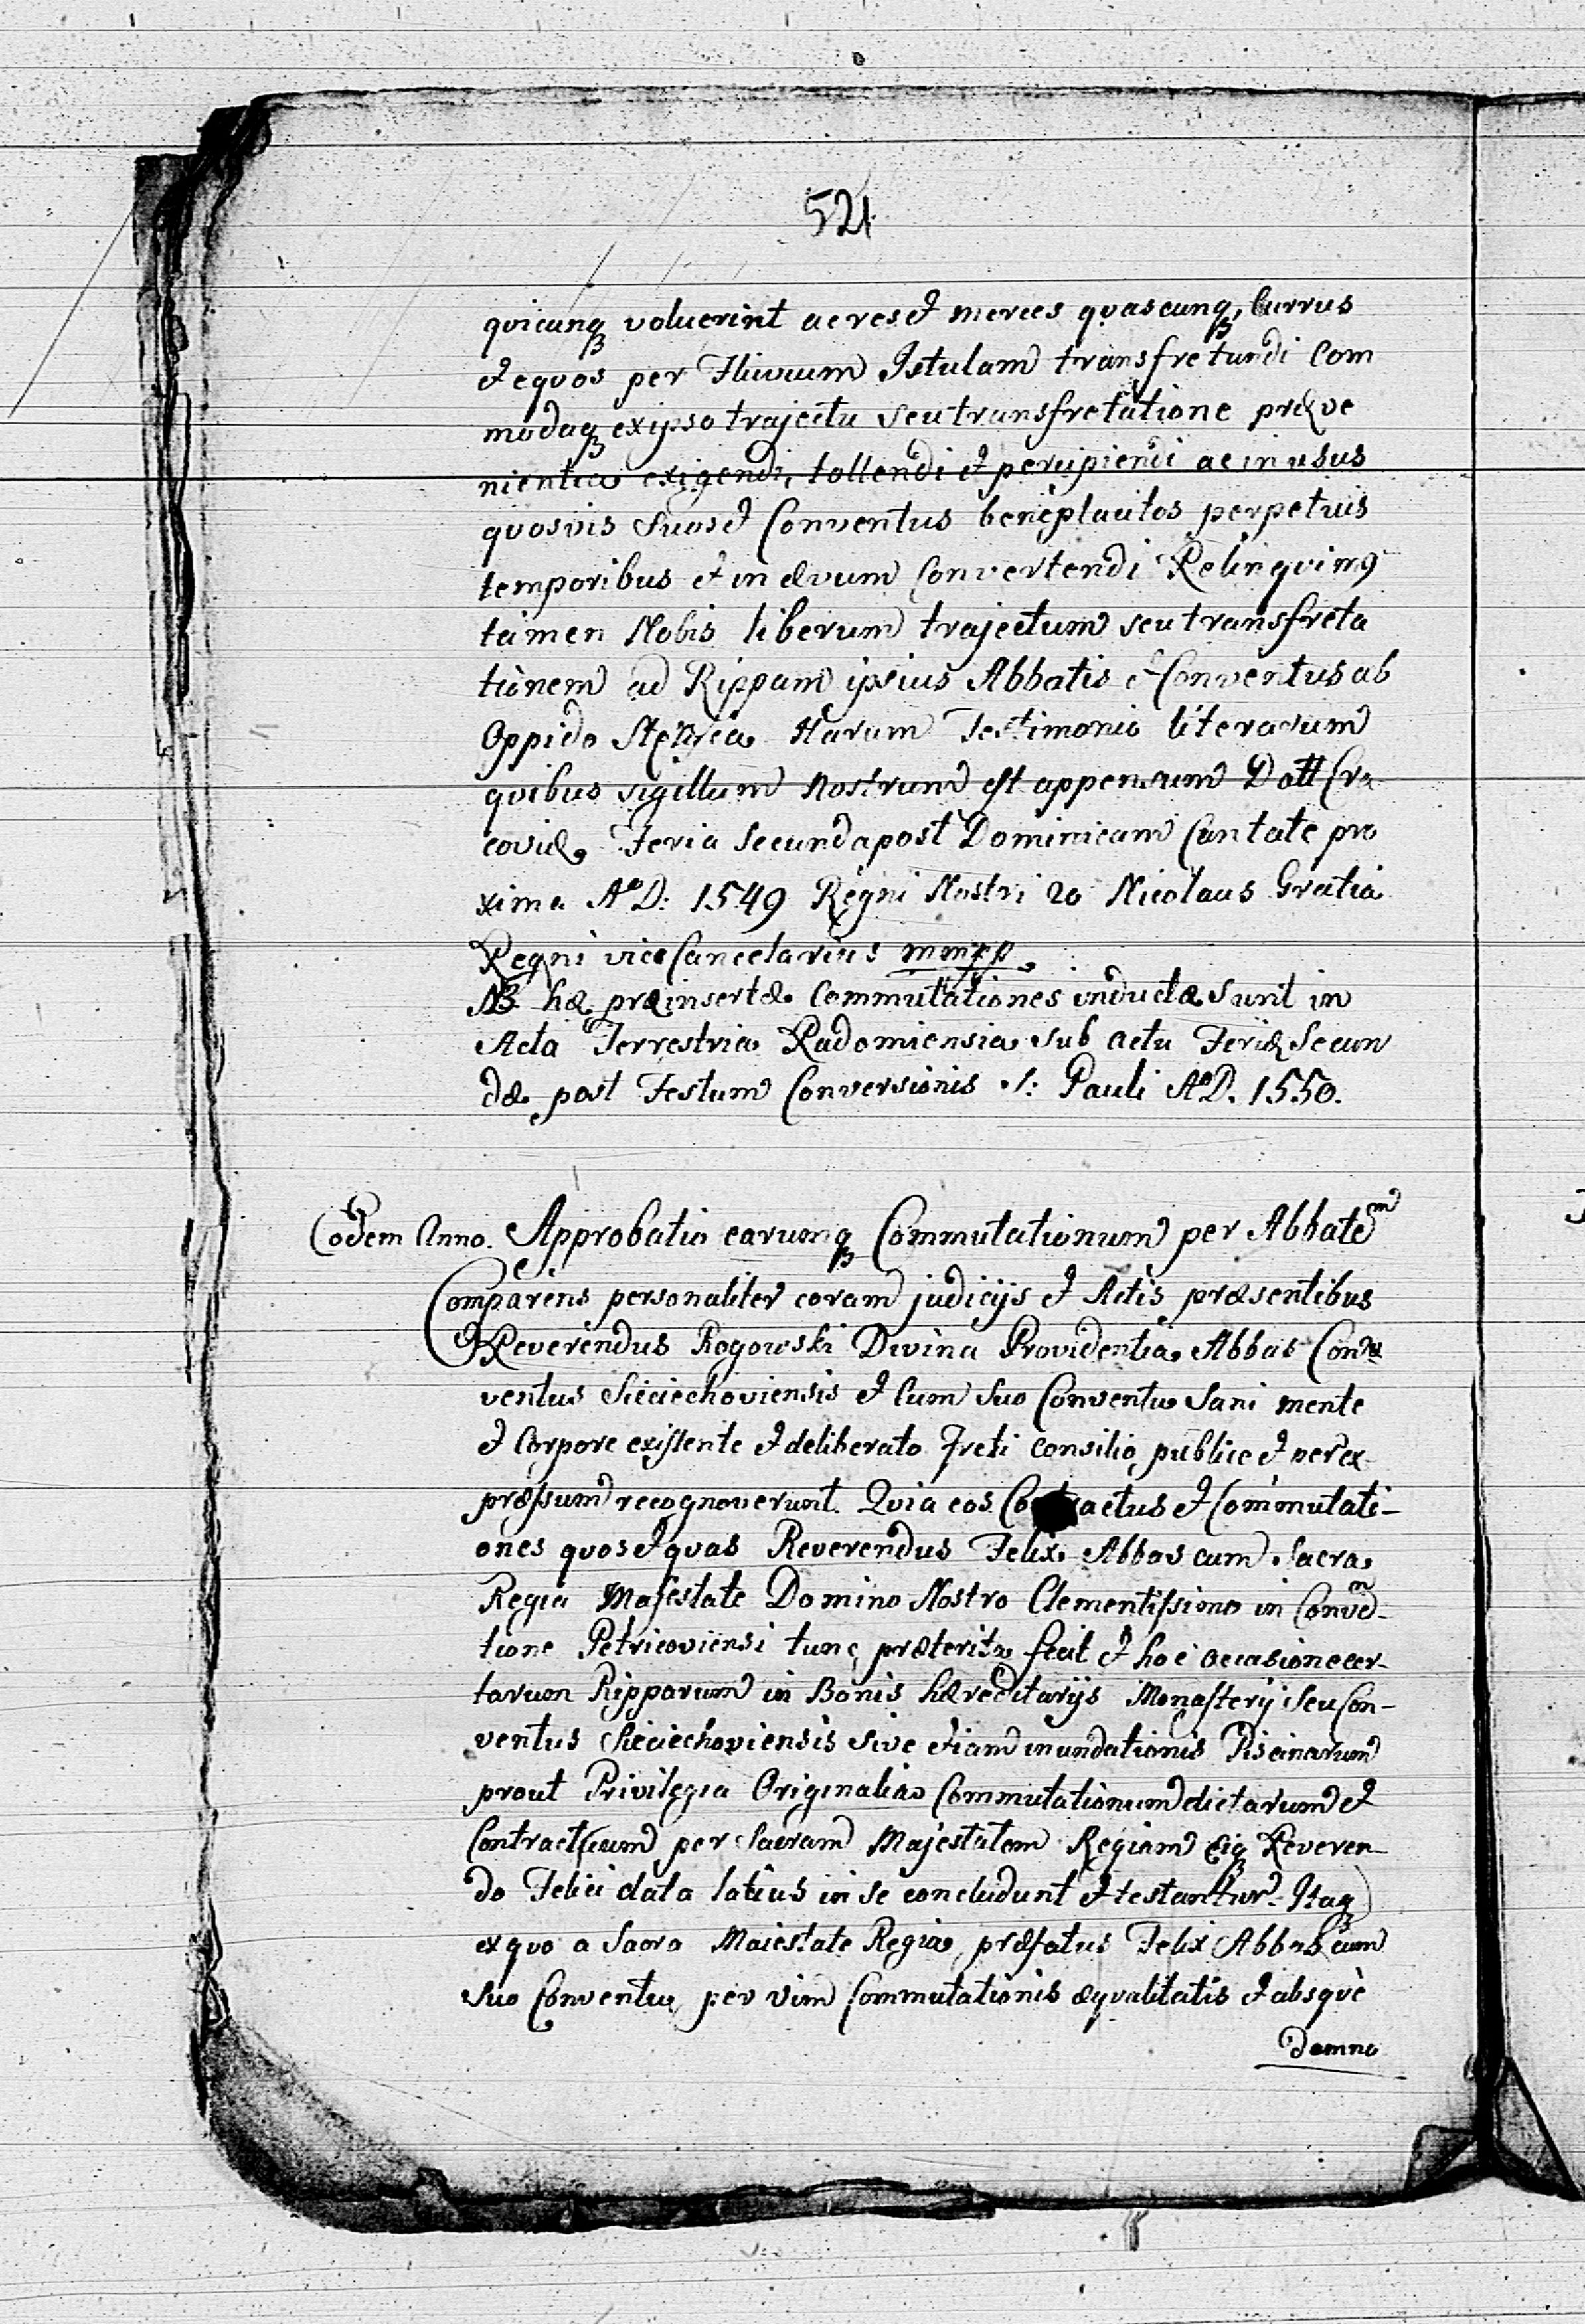 521
quicunqꝫ voluerint ac res et merces quascunqꝫ, currus
et equos per Fluvium Istulam transfretandi Com
modaqꝫ ex ipso trajectu seu transfretatione præve
nientia exigendi, tollendi et percipiendi ac in usus
quosvis suos et Conventus beneplacitos perpetuis
temporibus et in ævum Convertendi Relinquimꝰ
tamen Nobis liberum trajectum seu transfreta
tionem ad Rippam ipsius Abbatis et Conventus ab
Oppido Harum Testimonio literarum
quibus sigillum Nostrum est appensum Datt Cra
coviæ Feria Secunda post Dominicam Cantate pro
xima Aº D: 1549 Regni Nostri 20 Nicolaus Gratia
Regni vice Cancelarius mmpp
NB hæ præinsertæ Commutationes inductæ sunt in
Acta Terrestria Radomiensia sub actu Feriæ Secun
dæ post Festum Conversionis S: Pauli Aº D. 1550.
Eodem Anno. Approbatio earumqꝫ Commutationum per Abbatem
Comparens personaliter coram judicijs et Actis præsentibus
Reverendus Rogowski Divina Providentia Abbas Con
ventus Sieciechoviensis et Cum suo Conventu Sani mente
et Corpore existente et deliberato freti consilio, publice et per ex
præssum recognoverunt. Quia eos Contractus et Commutati-
ones quos et quas Reverendus Felix Abbas cum Sacra
Regia Majestate Domino Nostro Clementissimo in Conven-
tione Petricoviensi tunc præterita fecit et hoc occasione cer-
tarum Ripparum in Bonis hæreditarijs Monasterij seu Con-
ventus Sieciechoviensis sive etiam inundationis Piscinarum
prout Privilegia Originalia Commutationum dictarum et
Contractuum per Sacram Majestatem Regiam Eiqꝫ Reveren-
do Felici data latius in se concludunt et testantur. Itaqꝫ
ex quo a Sacra Maiestate Regia, præfatus Felix Abbas cum
suo Conventu, per vim Commutationis æqualitatis et absque
Damno